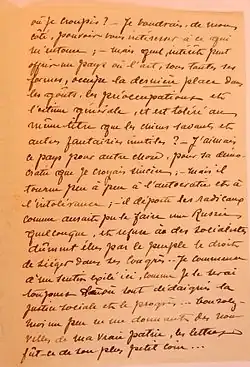 où je croupis? – Je voudrais, de mon
côté, pouvoir vous intéresser à ce qui
m'entoure; – mais quel intérêt peut
offrir un pays où l'art, sous toutes ses
formes, occupe la dernière place dans
les goûts, les préoccupations et
l'estime générale, et est toléré au
même titre que les chiens savants et
autres fantaisies inutiles? – J'aimais
ce pays pour autre chose, pour sa démo-
cratie que je croyais sincère; – mais il
tourne peu à peu à l'autocratie et à
l'intolérance; – il déporte les radicaux
comme aurait pu le faire une Russie
quelconque, et refuse à des socialistes
dûment élus par le peuple le droit
de siéger dans ses Congrès... Je commence
à me sentir exilé ici, comme je le serai
toujours là où l'on dédaigne la
justice sociale et le progrès... Consolez
moi un peu en me donnant des nou-
velles de ma vraie patrie, les lettres
fût-ce de son plus petit coin...